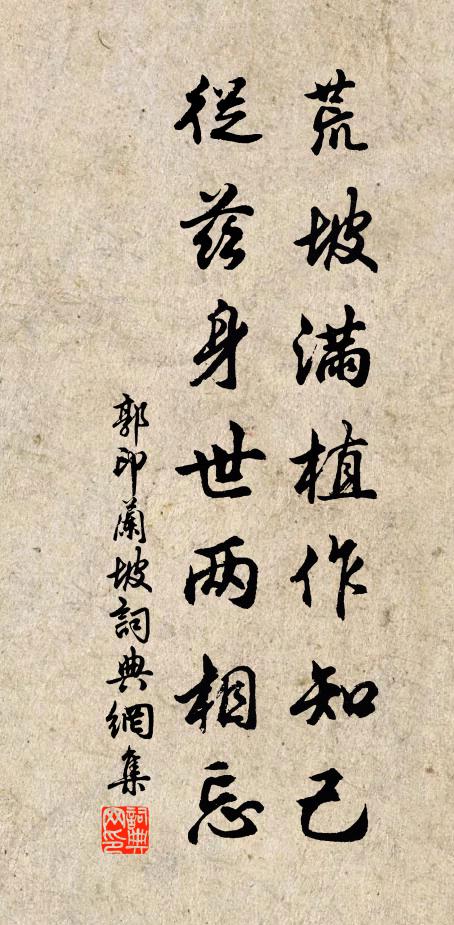 荒坡满植作知己
從兹身世两相忘
郭印蘭坡詞典網集
詞典网印